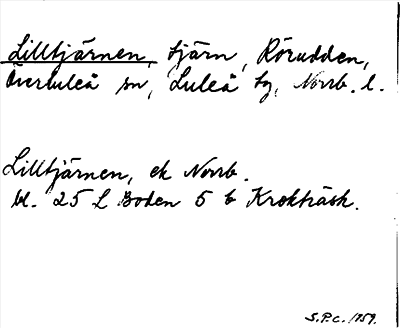 Lilltjärnen, tjärn, Rörudden,
Överluleå sn, Luleå tg, Norrb. l.
Lilltjärnen, ek Norrb.
bl. 25 L Boden 5 b Krokträsk.
S.P.c. 1959.